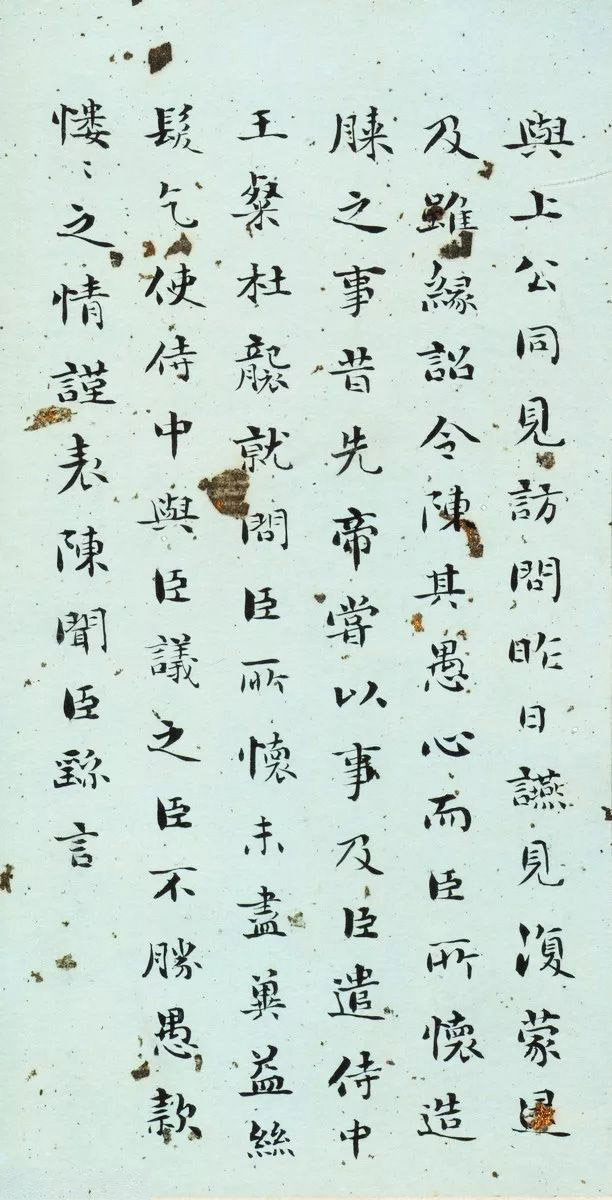 與上公同見訪問昨日讌見復蒙逮
及雖緣詔令陳其愚心而臣所懷造
膝之事昔先帝嘗以事及臣遣侍中
王粲杜襲就問臣所懷未盡冀益絲
髮乞使侍中與臣議之臣不勝愚款
慺〻之情謹表陳聞臣繇言